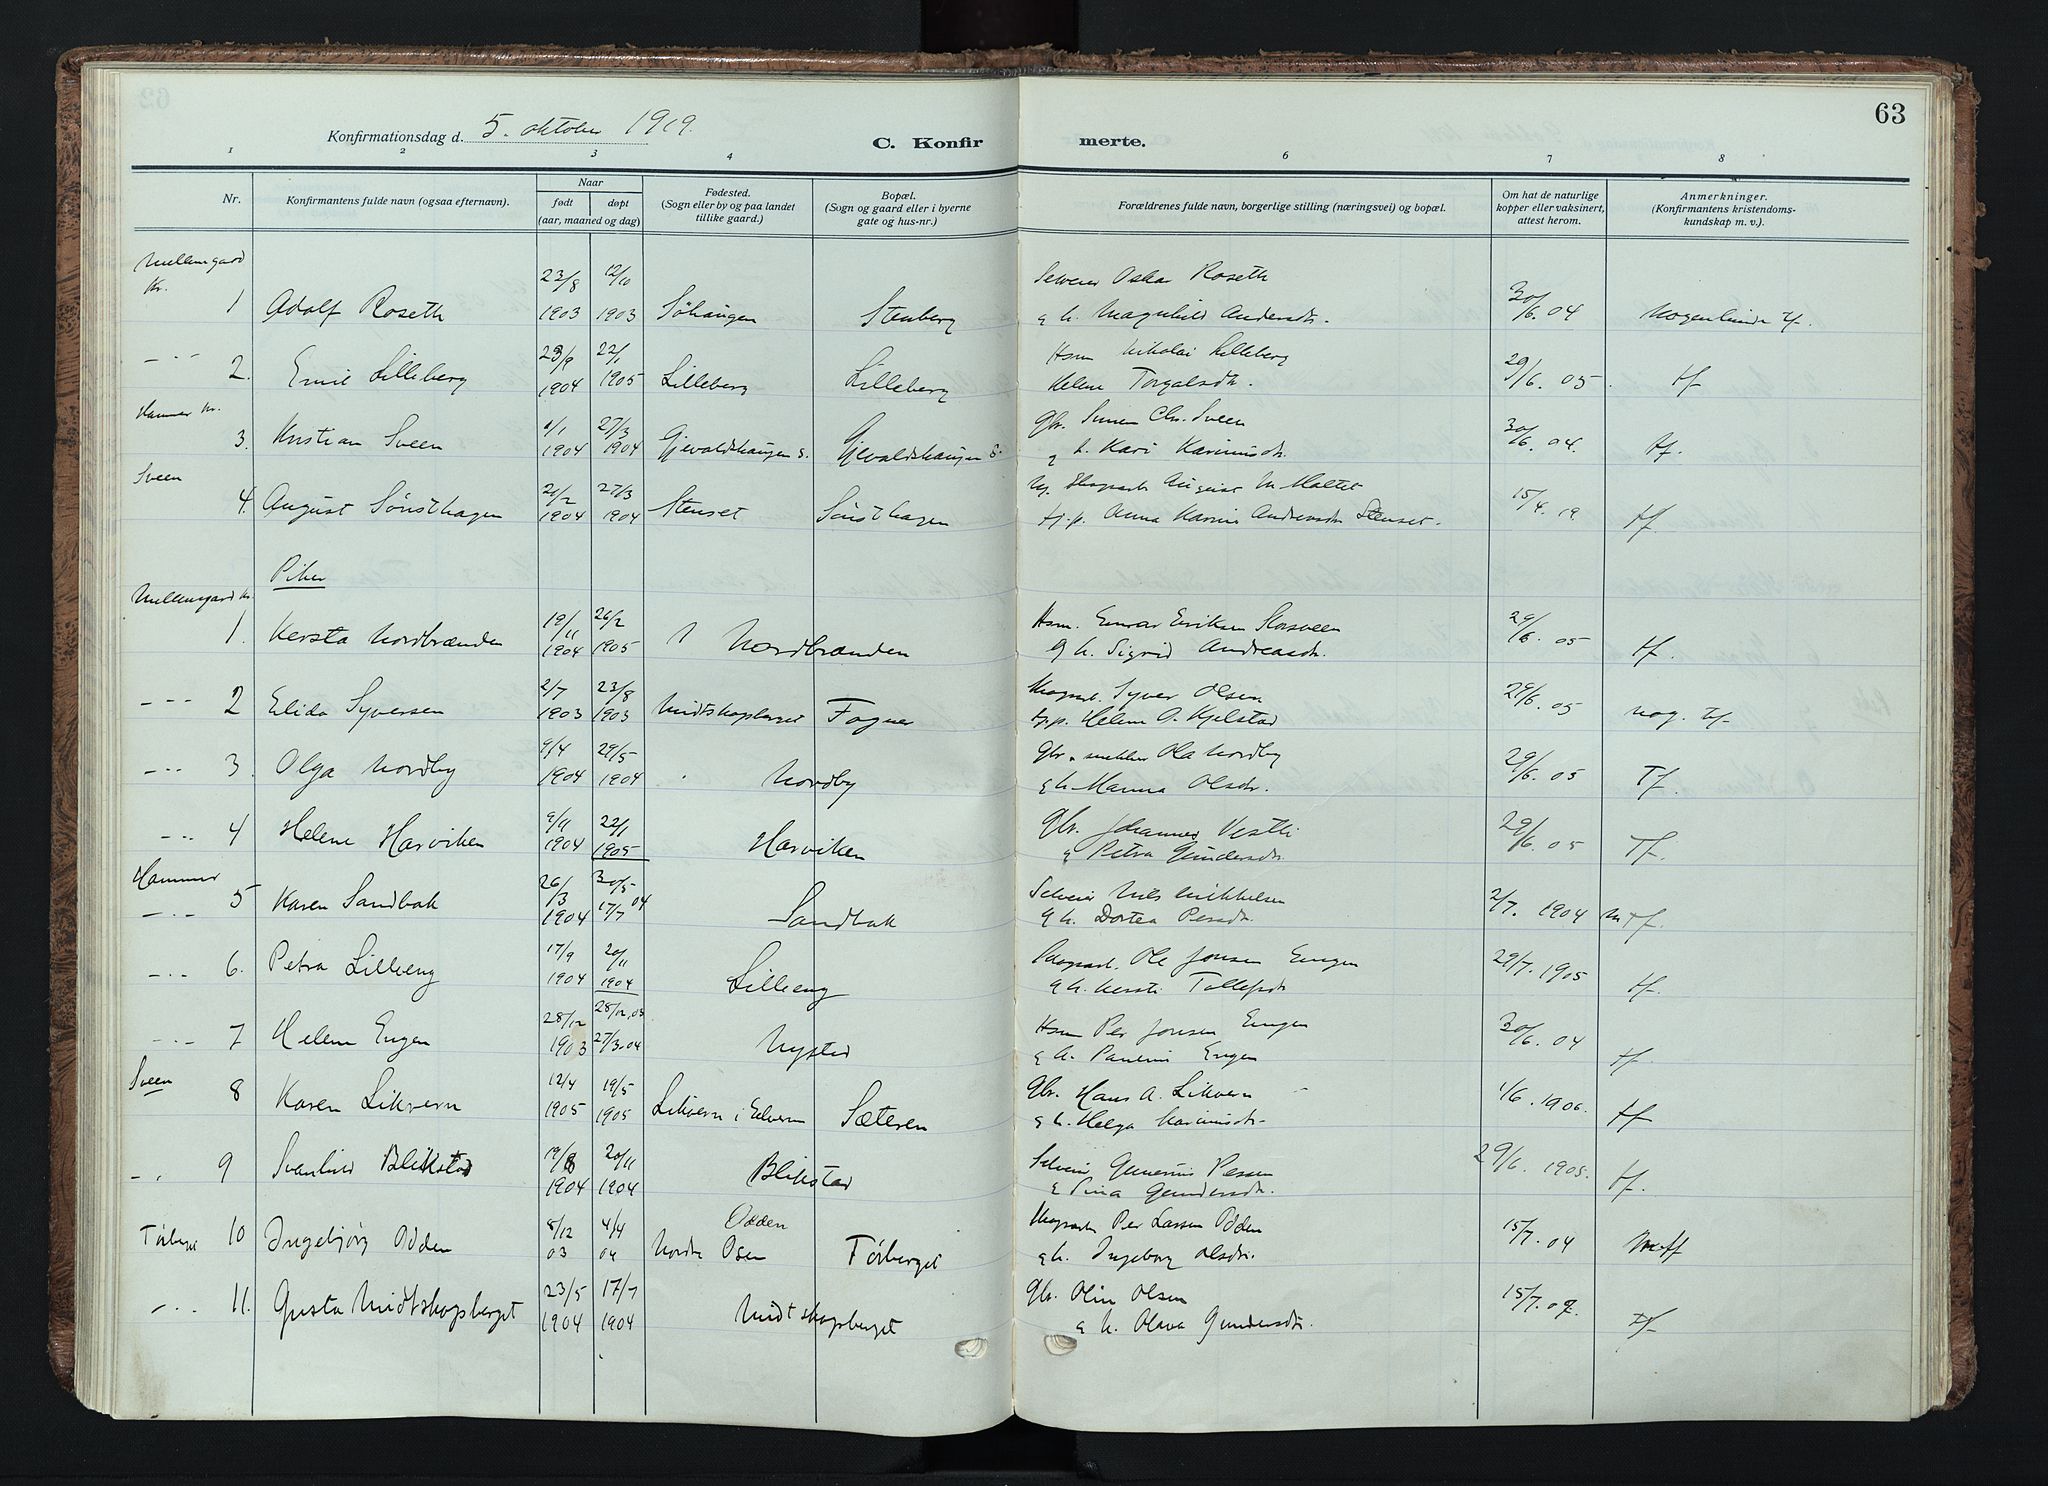 63
Konfirmationsdag d. 5. oktober 1919.
C. Konfirmerte.
1 2 3 4 5 6 7 8
Nr.
Konfirmantens fulde navn (ogsaa efternavn).
Naar
født døpt
(aar, maaned og dag)
Fødested.
(Sogn eller by og paa landet
tillike gaard.)
Bopæl.
(Sogn og gaard eller i byerne
gate og hus-nr.)
Forældrenes fulde navn, borgerlige stilling (næringsvei) og bopæl.
Om hat de naturlige
kopper eller vaksinert,
attest herom.
Anmerkninger.
(Konfirmantens kristendoms-
kundskap m. v.).
Mellemgaard
Kr.
23/8 12/10 Selveier Oskar Roseth 30/6. 04
1 Adolf Roseth 1903 1903 Söhaugen Stenberg g h. Magnhild Andersdtr. Nogenlunde Tf.
23/9 22/1 Hsm Nikolai Lilleberg 29/6. 05
2. Emil Lilleberg 1904 1905 Lilleberg Lilleberg Helene Torgalsdtr. tf
Hammer kr. 1/1 27/3 Gbr. Simen Chr. Sveen 30/6. 04.
3. Kristian Sveen 1904 1904 Gjevaldshaugen s. Gjevaldshaugen S. g h. Kari Karinusdtr. tf.
Sveen 21/2 27/3 August M. Moltet 15/4. 19.
4. August Sönsthagen 1904 1904 Stenset Sönsthagen Anna Karine Andreasdtr Stenset. tf.
Piker
Mellemgaard kr.
19/11 26/2 Hsm. Einar Eriksen Storsveen 29/6. 05
1. Kersta Nordbrænden 1904 1905 Nordbrænden g h. Sigrid Andreasdtr. tf.
2/7 23/8 Skogsarb. Syver Olsen 29/6. 05
2 Elida Syversen 1903 1903 Midtskogberget Fagner Helene O. Kjelstad nog. Tf
9/4 29/5 Gbr. snekker Ola Nordby 29/6. 05
3. Olga Nordby 1904 1904 Nordby g h. Hanna Olsdtr. Tf.
9/11 22/1 Gbr. Johannes Vestli 29/6. 05
4 Helene Harviken 1904 1905 Harviken g Petra Gundersdtr. Tf.
Hammer 26/3 30/5 Selveier Nils Mikkelsen 2/7. 1904
5 Karen Sandbak 1904 17/7 04 Sandbak g h. Dortea Persdtr. mtf.
17/9 20/11 Ole Jonsen Engen 29/7. 1905
6. Petra Lilleeng 1904 1904 Lilleeng g h. Kersti Tollefsdtr tf.
28/12 28/12. 03 Hsm Per Jonsen Engen 30/6. 04
7 Helene Engen 1903 27/3. 04 Nystad g h. Pauline Engen tf
Sveen 12/4 19/5 Gbr. Hans A. Likvern 1/6. 1906.
8 Karen Likvern 1905 1905 Likvern i Elverum Sæteren g h. Helga Karinusdtr. tf
19/8 20/11 Selveier Gunerius Persen 29/6. 1905.
9 Svanhild Blikstad 1904 1904 Blikstad g Gundersdtr. tf.
8/12 4/4 Odden Skogsarb Per Larsen Odden 15/7. 04
Törberget 10 Ingebjörg Odden 03 04 Nordre Osen Törberget g h. Ingeborg Olsdtr. mtf
23/5 17/7 Gbr. Olin Olsen 15/7. 07.
11. Gusta Midtskogsberget 1904 1904 Midtskogsberget g h. Olava Gundersdtr. Tf